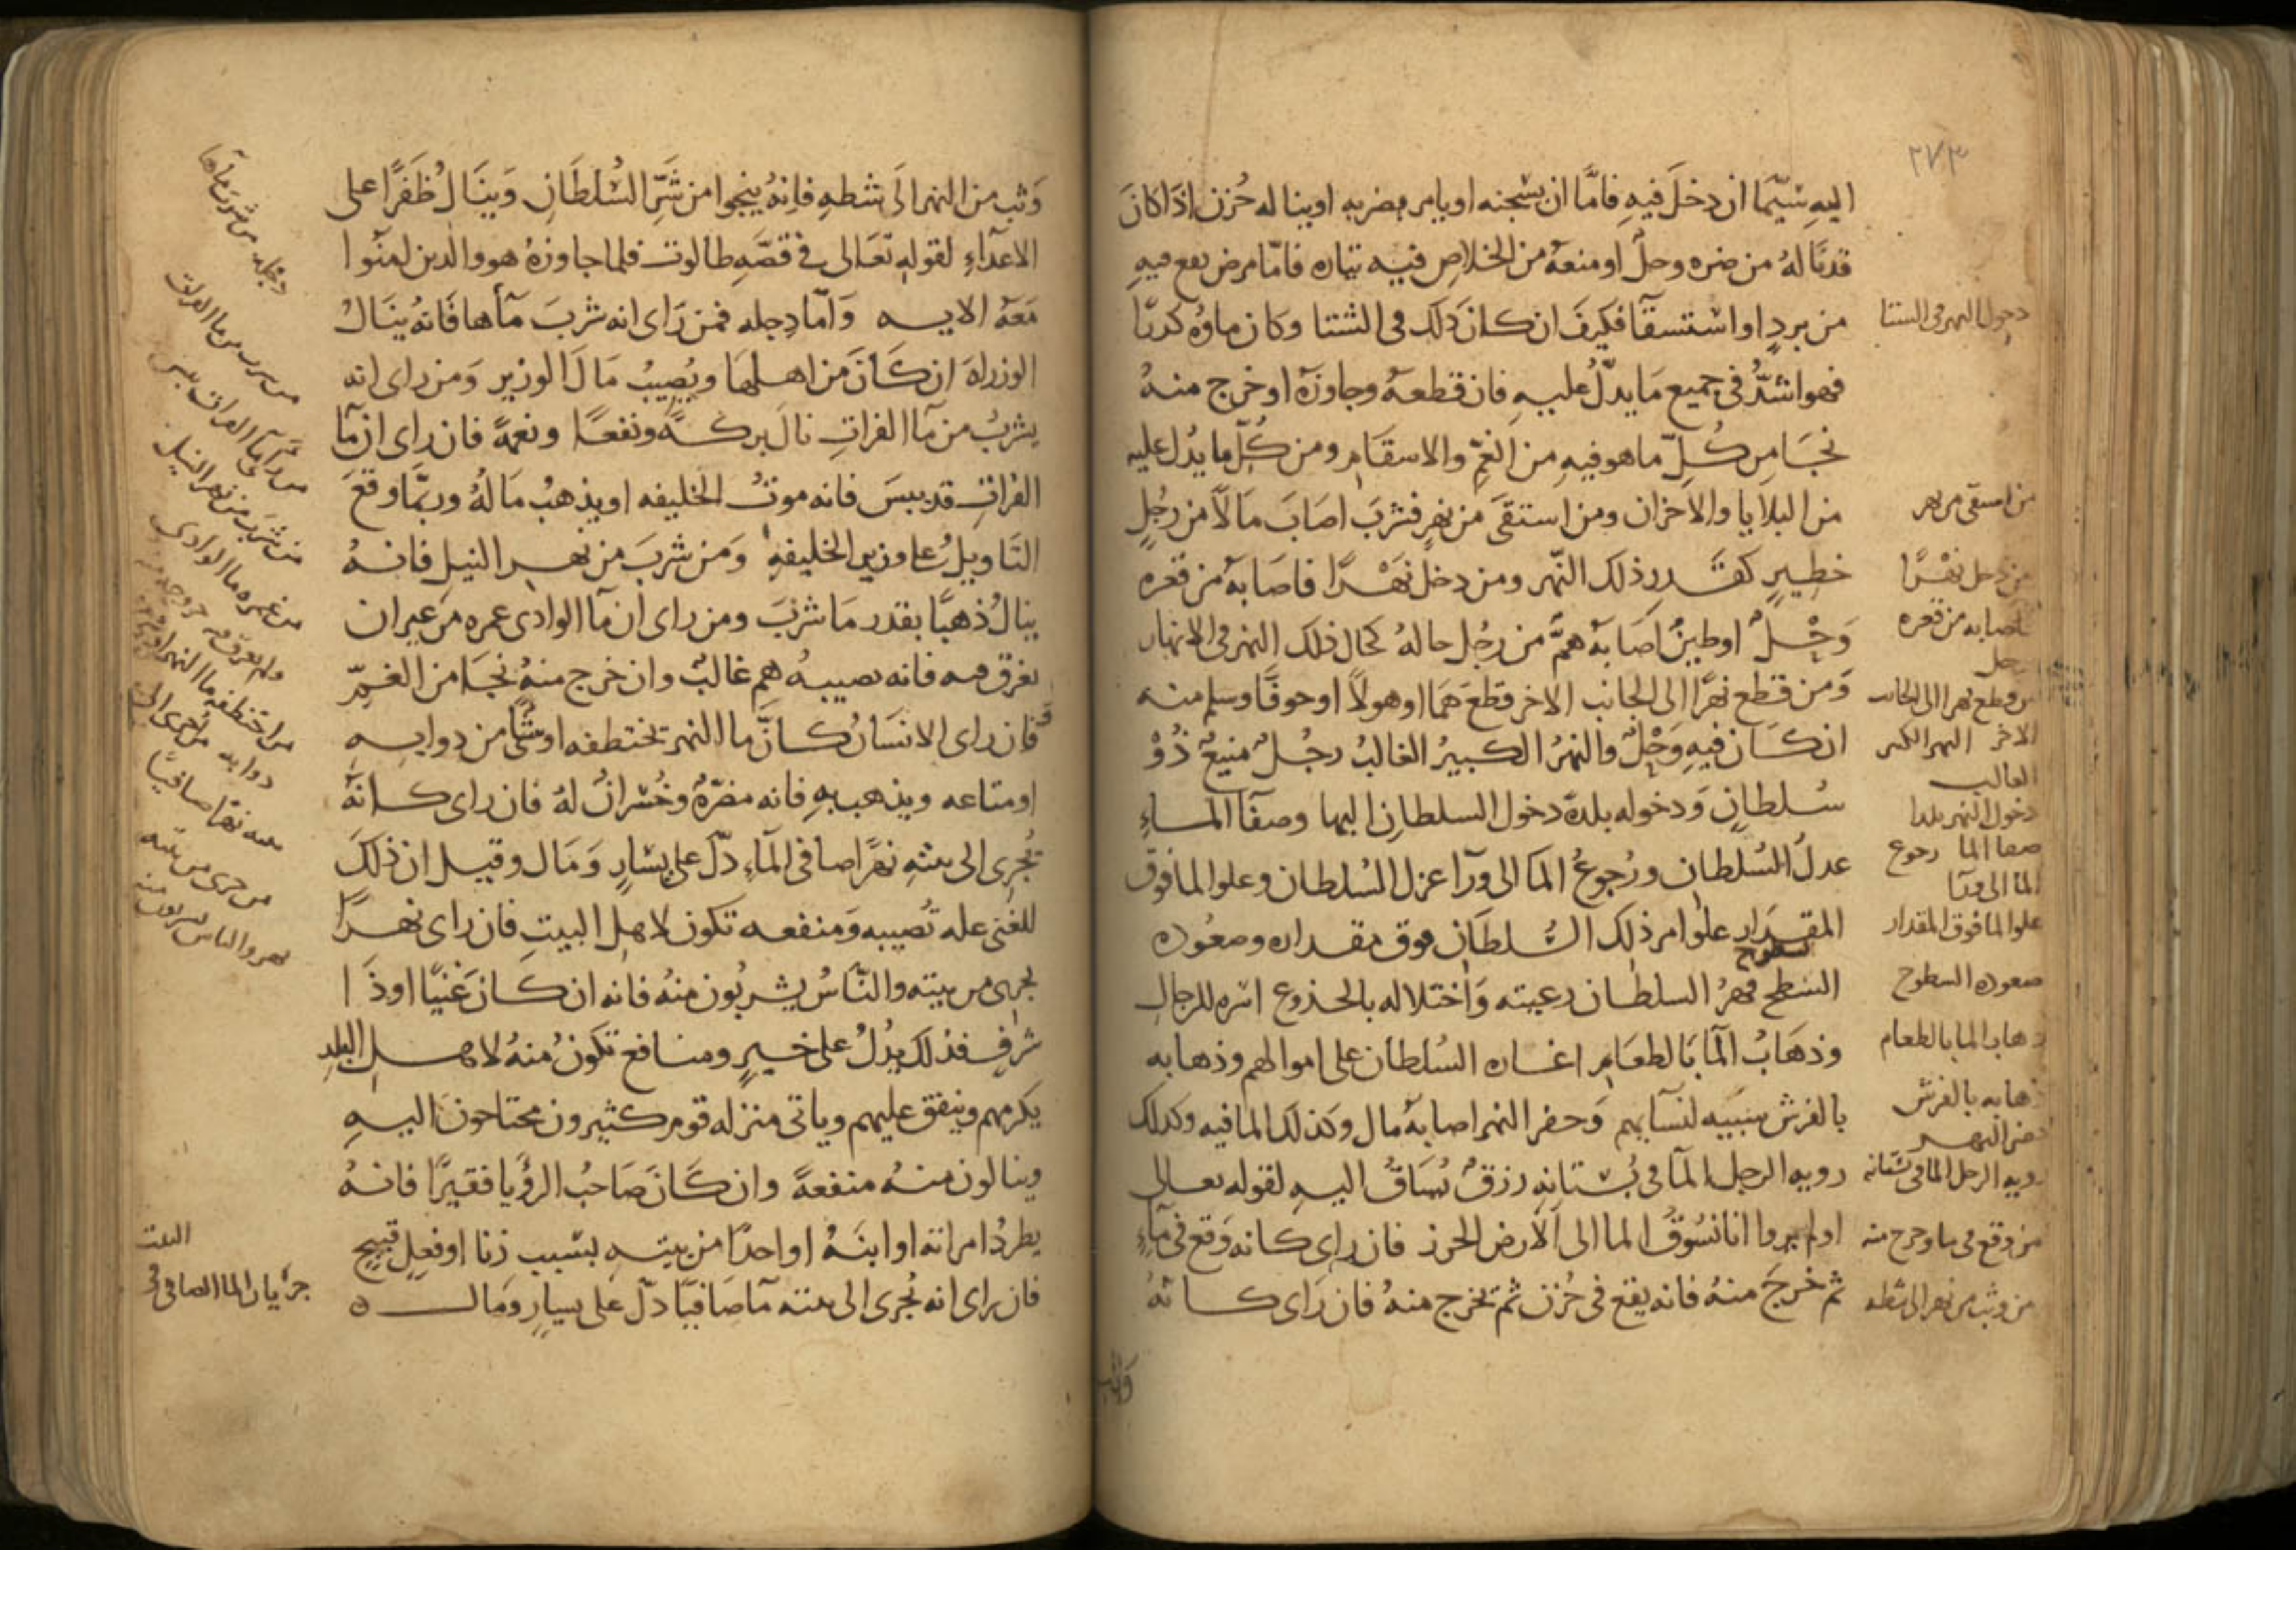 ٢٧٣
اليه سيّما ان دخل فيه فامّا ان يسجنه او يامر بضربه او يناله حُزن اذا كان
قد نا لهُ من ضره وحل او منعه من الخلاص فيه تياره فامّا مرض يقع فيه
من بردٍ او استسقآ فكيف ان كان ذلك فى الشتا وكان ماؤه كدرًا
فهو اشدّ فى جميع مَا يدلّ عليهِ فان قطعهُ وجاوزهُ او خرج منهُ
نجَا مِن كُلّ ما هو فيهِ من الغمّ والاسقام ومن كُلّ ما يدُل عليه
من البلايا والاحزان ومن استقَى من نهرٍ فشربَ اصَابَ مَالاً من رجُلٍ
خطيرٍ كقدر ذلك النّهر ومن دخل نَهْرًا فاصَابهُ من قعره
وَحْلٌ او طينٌ اصَابهُ همٌّ من رجُل حالهُ كحال ذلك النهر فى الانهار
وَمن قطع نهرًا الى الجانب الاخر قطعَ همّا او هولاً او خوفًا وسلم منه
ان كان فيهِ وَحْلٌ والنهرُ الكبيرُ الغالبُ رجُلٌ منيعٌ ذُوْ
سُلطانٍ وَدخوله بلدةً دخول السلطان اليها وصفآ المآءِ
عدلُ السُلطان ورُجوعُ المآ الى ورآ عزل السُلطان وعلو الما فوق
المقدَار علوا مر ذلك السُّلطَان فوق مقداره وصعُوده
سطوح
السَطح قهرُ السلطان رعيته وَاختلاله بالجذوع اسره للرجالِ
وذهَابُ المآ بَالطعَامِ اغاره السُلطان على اموالهم وذهابه
بالفرش سَبيه لنسآيهم وَحفر النهر اصابهُ مال وكذلك الما فيه وكذلك
رويه الرجل المآ فى بُستانهِ رزقٌ يُسَاقُ اليهِ لقوله تعالى
اولم يروا انا نسُوقُ الما الى الارض الجرز فان راى كانه وَقع فى مآءٍ
ثم خرجَ منهُ فانه يقع فى حُزن ثم يخرج منهُ فان رَاى كانهُ
وثب
دخول النهر فى الشتا
من استقى من نهر
من دخل نهْرًا
فاصابه من قعره
وحل
من قطع نهرا الى الجانب
الاخر النهر الكبير
الغالب
دخول النهر بلدا
صفا الما رجوع
الما الى ورآ
علو الما فوق المقدار
صعوده السطوح
ذهاب الما بالطعام
ذهابه بالفرش
حفر النهر
رويه الرجل الما فى بستانه
من وقع فى ما وخرج منه
من وثب من نهر الى شطه
وَثب من النهر الَى شطهِ فانهُ ينجوا من شَرِّ السُّلطَانِ وَينَالُ ظَفَرًا على
الاعدآءِ لقولهِ تعَالى فى قصّهِ طالوت فلما جاوزهُ هو والذين امنُوا
مَعَهُ الايه وَامّا دِجله فمن رَاى انه شربَ مآهَا فَانهُ ينَالُ
الوزراهَ ان كَانَ من اهلهَا ويُصيبُ مَالَ الوزير وَمن راى انه
يشربُ من مآ الفراتِ نالَ بركهً ونفعًا ونعمهً فان راى ان مآ
الفراتِ قد يبسَ فانه موتُ الخليفه او يذهبُ مَالهُ وربمَّا وقعَ
التَاويلُ على وزير الخليفهِ وَمَن شربَ من نهر النيلِ فانهُ
ينالُ ذهبًا بقدر مَا شربَ ومن راى ان مآ الوادى غمره من غير ان
يغرق فيه فانه يصيبهُ هم غالبٌ وان خرج منهُ نجَا من الغمِّ
فان راى الانسَانُ كانَّ ما النهر تختطفه او شيًا من دوابهِ
او متاعه ويذهب بهِ فانه مضرّهٌ وخُسرانٌ لهُ فان راى كانهُ
يُجرى الى بيتهِ نهرًا صافى المآءِ دلّ على يسَارٍ وَمَال وقيل ان ذلكَ
للغنى عله تُصيبه وَمنفعه تكون لاهل البيتِ فان راى نهرًا
يجرى من بيته والنّاسُ يشربُون منهُ فانه ان كان غنيًّا او ذَا
شرفٍ فذلك يدُلُ على خيرٍ ومنافع تكونُ منهُ لاهل البلدِ
يكرمهم وينفق عليهم وياتى منزله قوم كثيرون محتاجونَ اليهِ
وينالون منهُ منفعهً وان كانَ صَاحبُ الرؤيا فقيرًا فانهُ
يطردُ امراته او ابنَهُ او احدًا من بيتهِ بسبب زنا او فعلٍ قبيحٍ
فان راى انه يُجرى الى بيته مآ صَافيًا دلّ على يسارٍ وَمال ه
دجله من شرب مآها
من شرب من ما الفرات
من راى ما الفرات يبس
من شرب من نهر النيل
من غمره ما الوادى
ولم يغرق فيه
من اختطفه ما النهر او
دوابه من يجرى الى
بيته نهرا صافيًا
من جرى من بيته
نهر والناس يشربون منه
جريان الما الصافى فى
البيت